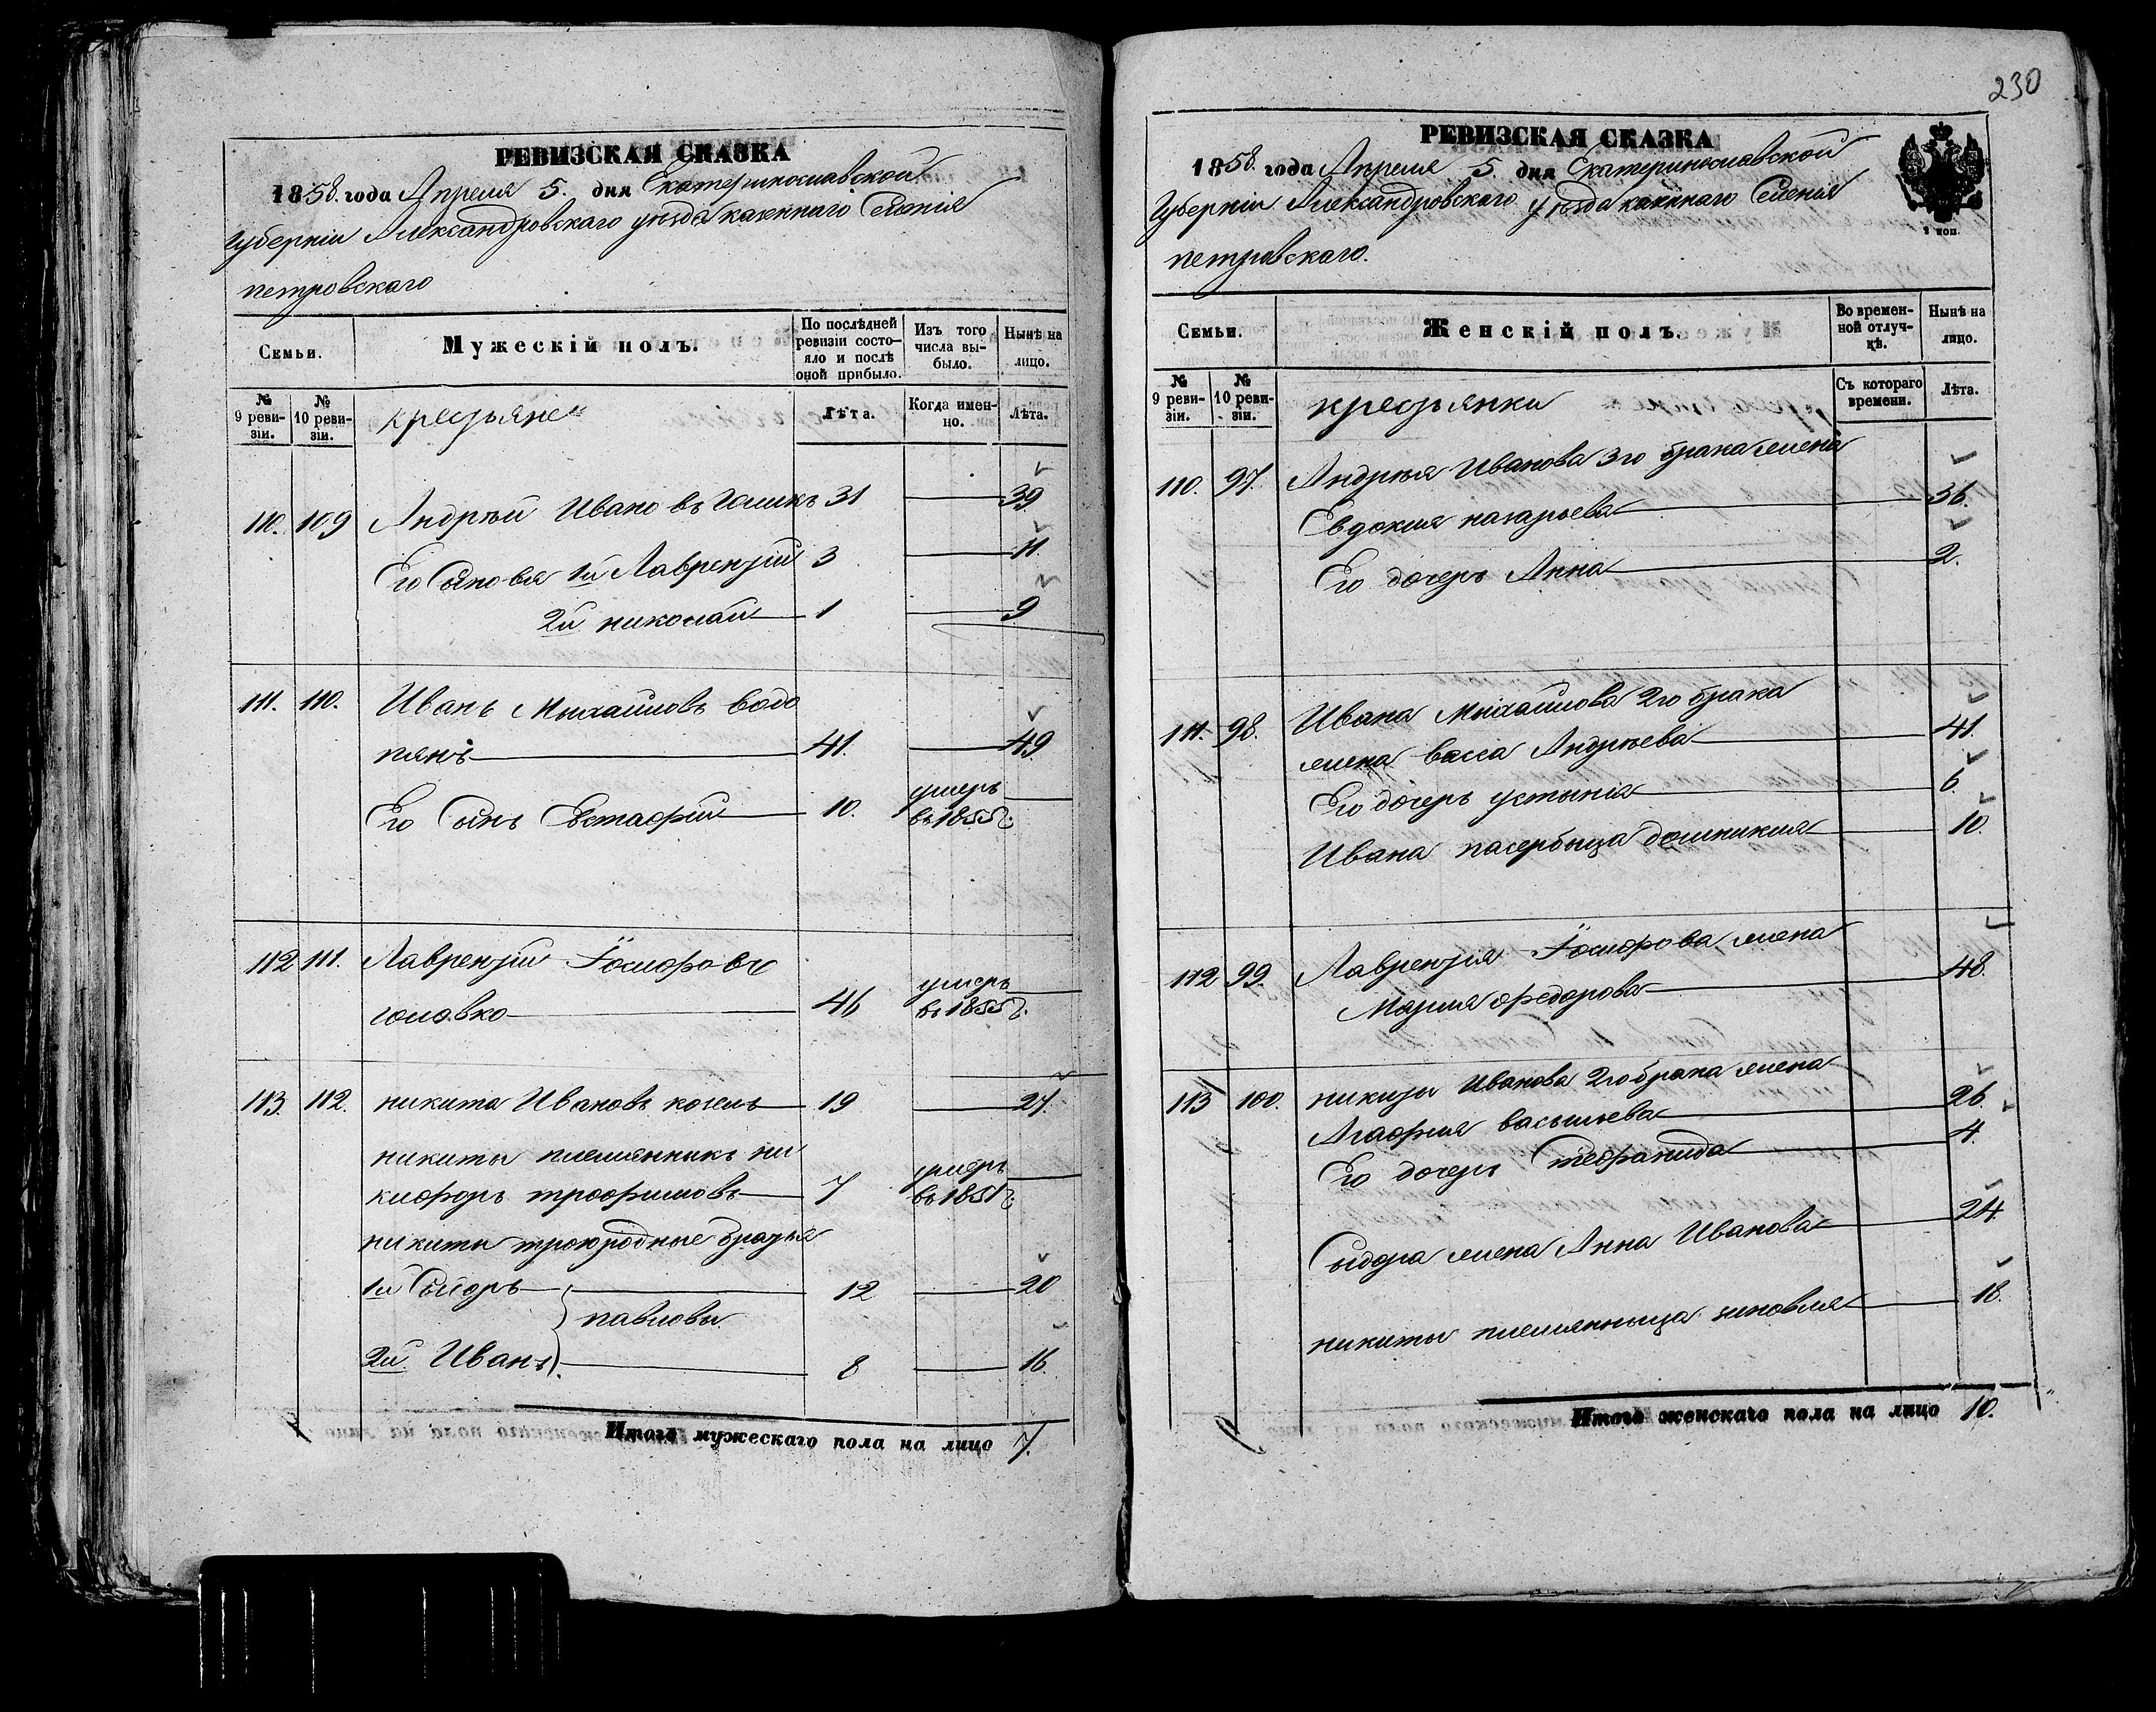 230
РЕВИЗСКАЯ СКАЗКА
1858. года Апреля 5. дня Екатеринославской
Губерніи Александровскаго уѣзда казеннаго Селенія
петровскаго
Семьи.
Мужескій полъ.
По послѣдней ревизіи состо-
яло и послѣ оной прибыло.
Изъ того числа вы-
было.
Нынѣ на лицо.
№ 9 реви-
зіи.
№ 10 реви-
зіи.
крестьяне
Лѣта.
Когда имен-
но.
Лѣта.
110. 109 Андрѣй Ивановъ 31 39
Его Сыновья 1й Лаврентій 3 11.
2й николай 1 9
111. 110. Иванъ Михайловъ водо
пянъ 41. 49.
Его Сынъ Евстафій 10. умеръ
въ 1855 г.
112 111. Лаврентій Іосифовъ
головко 46 умеръ
въ 1855 г.
113. 112. никита Ивановъ козелъ 19 27.
никиты племянныкъ ни
кифоръ трофимовъ 7 умеръ
въ 1851 г.
никиты троюродные братья
1й Сыдоръ 12 20
павловы
2й Иванъ 8 16.
Итого мужескаго пола на лицо 7.
РЕВИЗСКАЯ СКАЗКА
1858. года Апреля 5 дня Екатеринославской
Губерніи Александровскаго уѣзда казеннаго Селенія
петровскаго.
1 коп.
Семьи.
Женскій полъ.
Во времен-
ной отлуч-
кѣ.
Нынѣ на лицо.
№ 9 реви-
зіи.
№ 10 реви-
зіи.
крестьянки
Съ котораго времени.
Лѣта.
110. 97. Андрѣя Иванова 3го брака жена
Евдокия назарьева 36.
Его дочерь Анна 2.
111. 98. Ивана Михайлова 2го брака
жена васса Андрѣева 41.
Его дочерь устынія 6.
Ивана пасербыца домникия 10.
112 99. Лаврентія Іосифова жена
Мария федорова 48.
113 100. никиты Иванова 2го брака жена
Агафия васыльева 26.
Его дочерь Стефанида 4.
Сыдора жена Анна Иванова 24.
никиты племянныца зиновия 18.
Итого женскаго пола на лицо 10.